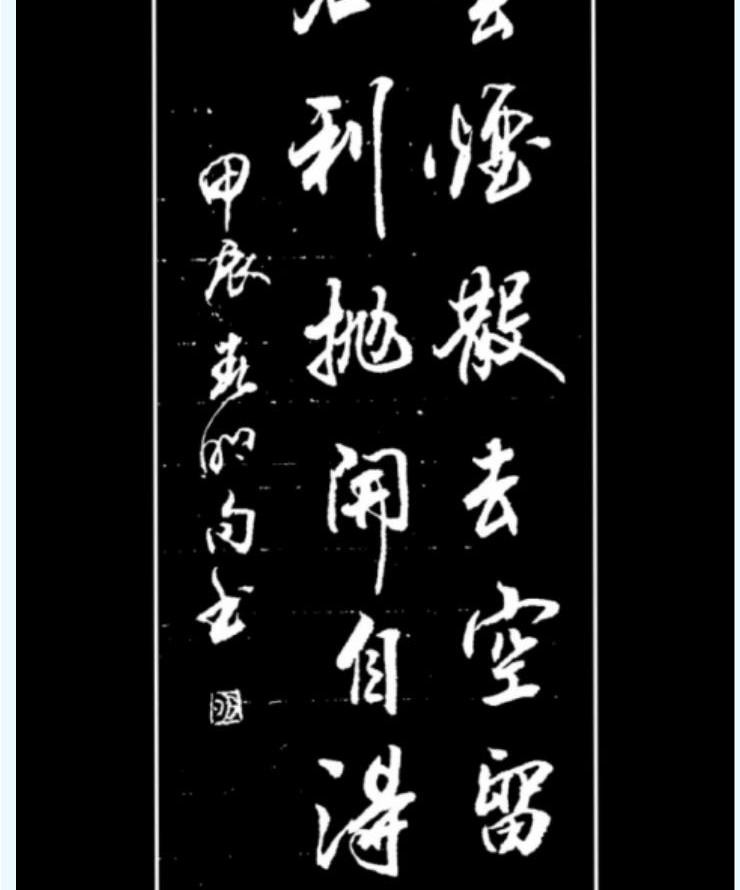 煙散去空留
利抛開自得
甲辰春明句书